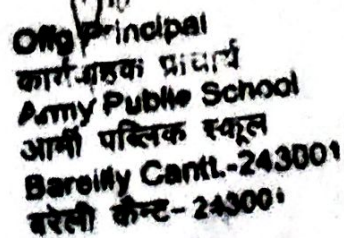 Offg Principal
कार्यवाहक प्राचार्य
Army Public School
आर्मी पब्लिक स्कूल
Bareilly Cantt.-243001
बरेली कैन्ट- 243001